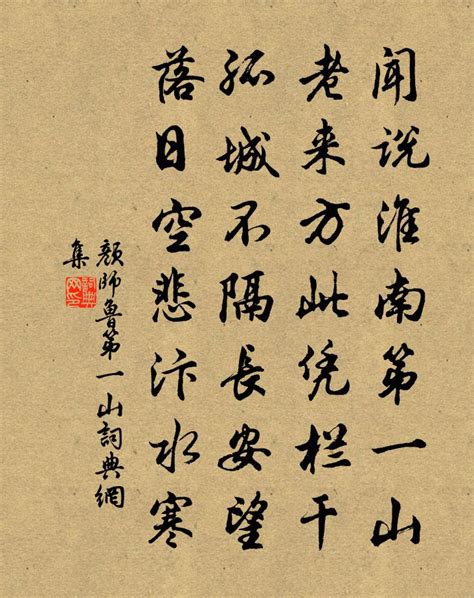 闻说淮南第一山
老来方此凭栏干
孤城不隔长安望
落日空悲汴水寒
颜师鲁第一山词典網
集
詞典網印